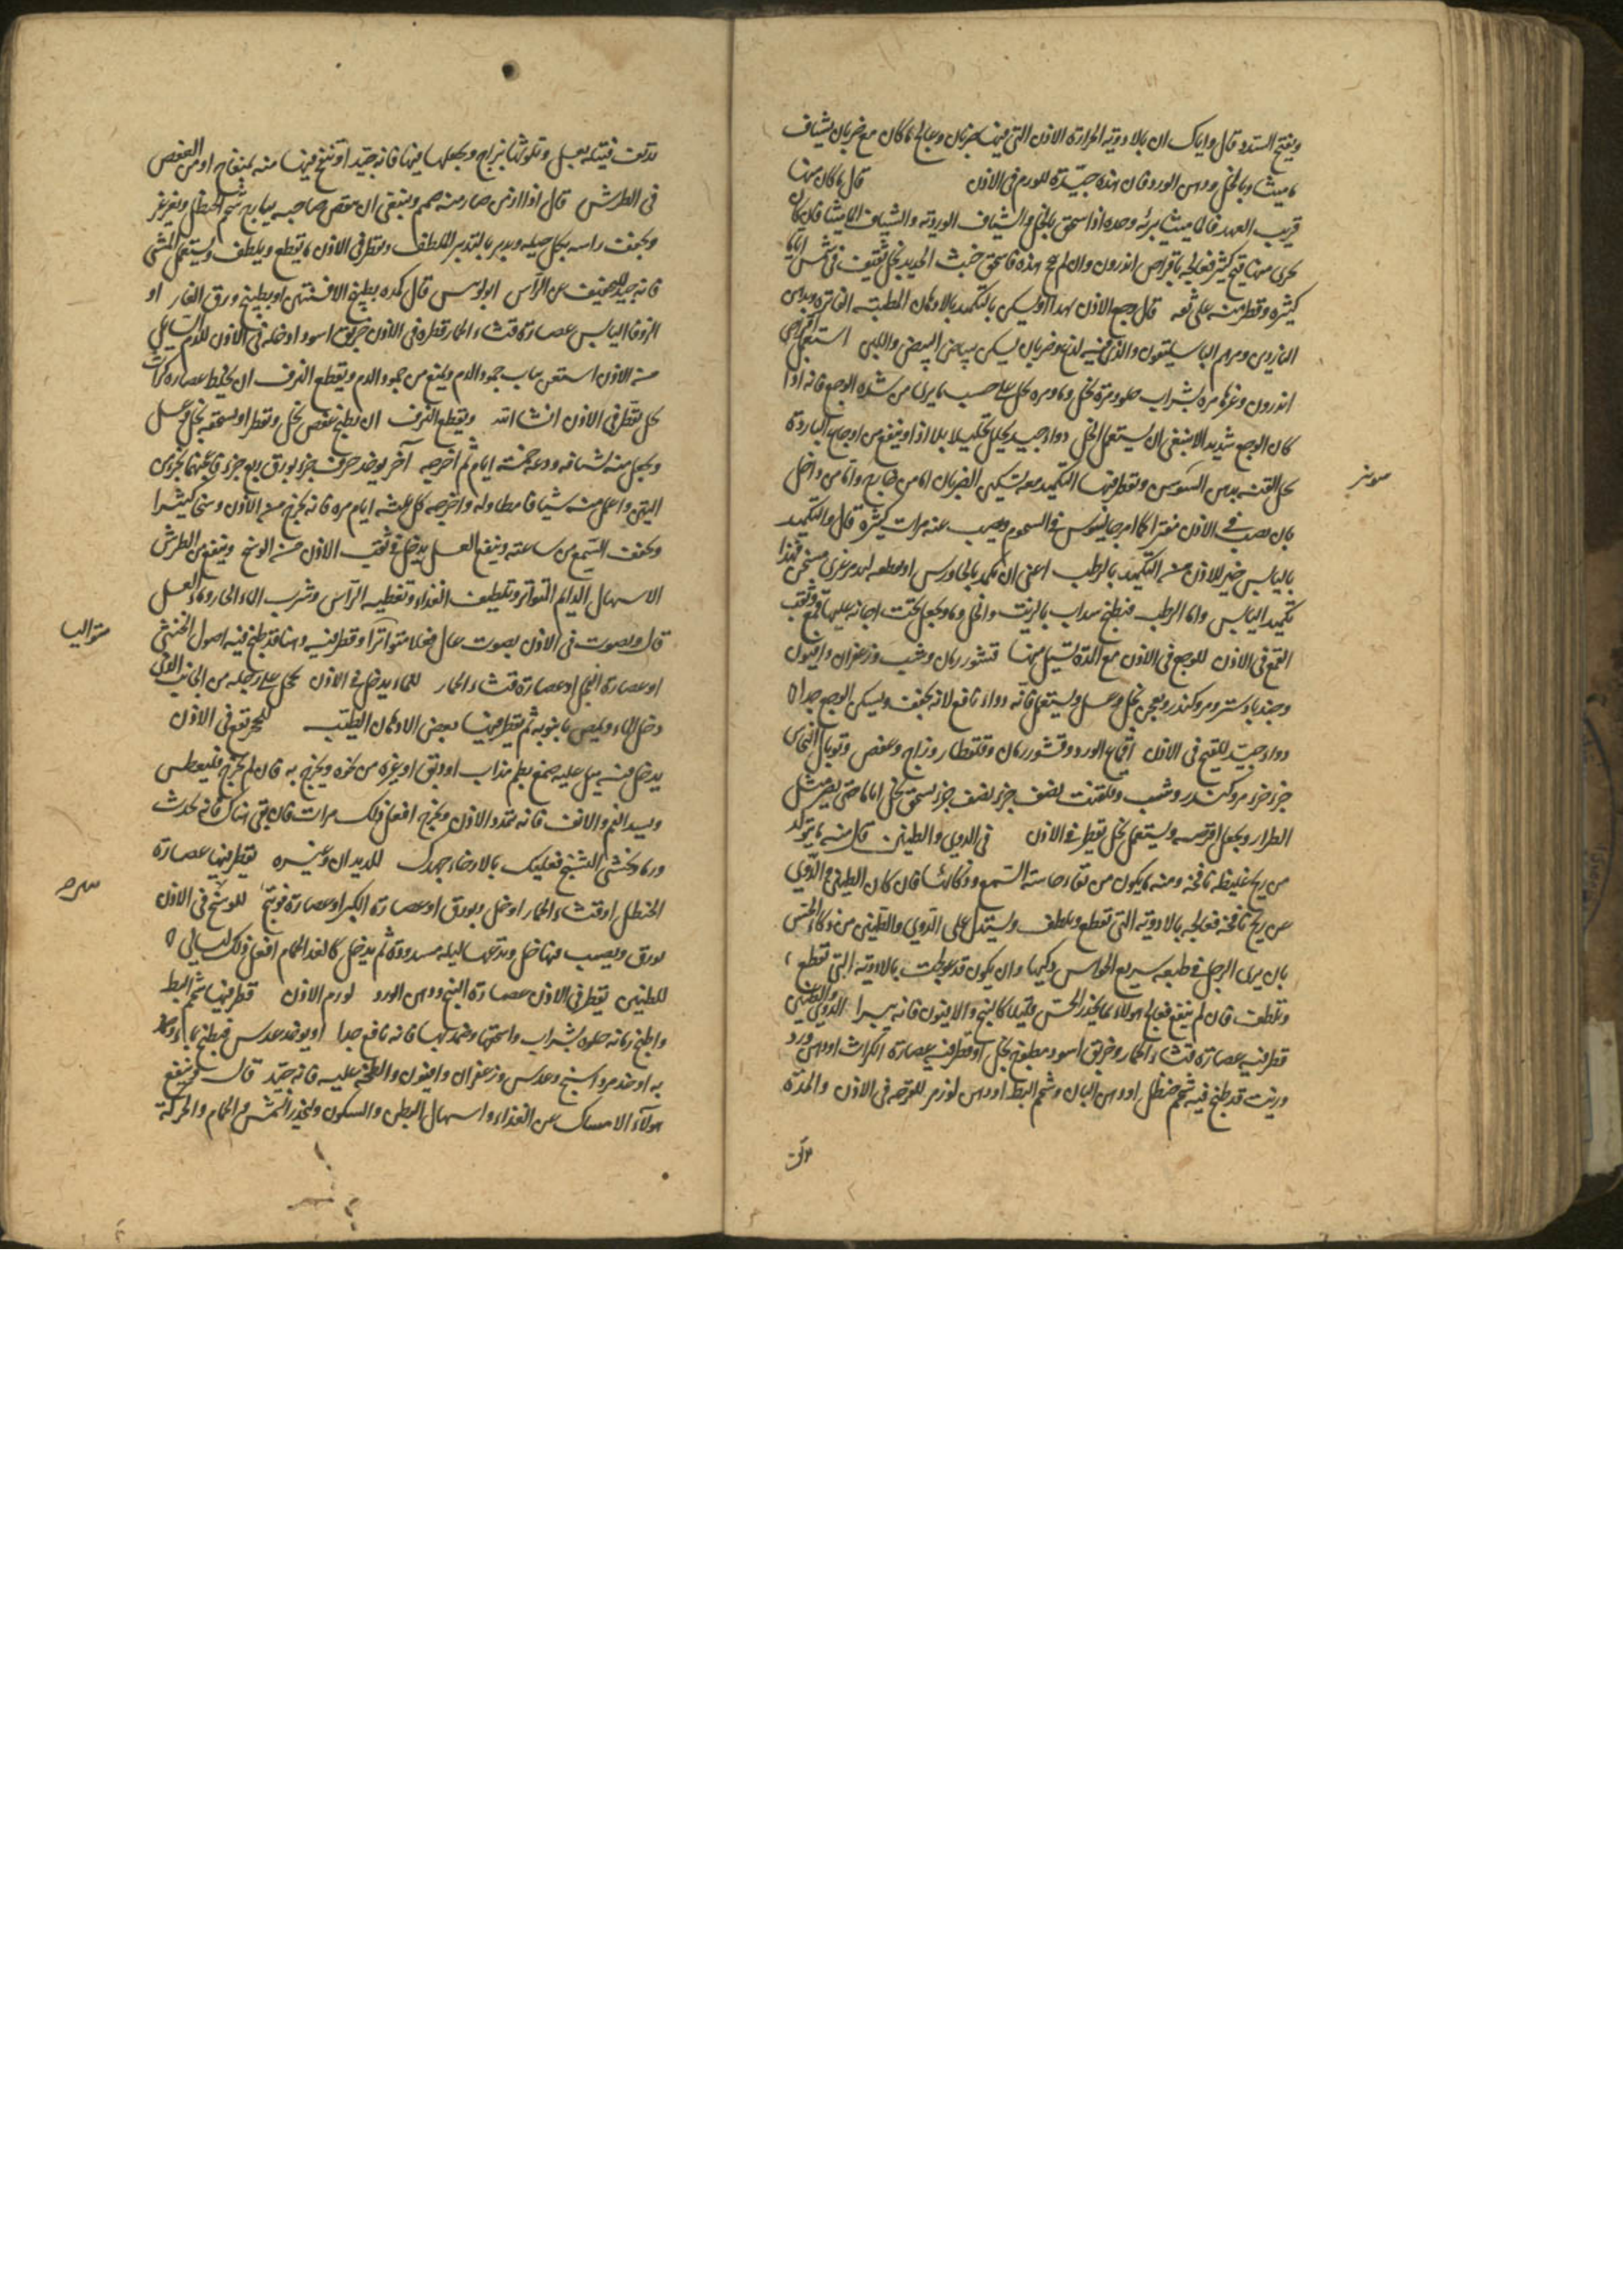 ويفتح السدد قال واياك ان بالادوية الحارة الاذن التى فيها ضربان وعالج ما كان مع ضربان بشياف
ماميثا وبالخل ودهن الورد فان هذه جيدة للورم فى الاذن قال ما كان منها
قريب العهد فالماميثا يبرئه وحده اذا سحق بالخل والشياف الوردية والشياف الماميثا فان كان
يجرى منها قيح كثير فعالجه باقراص اندرون وان لم يج هذه فاسحق خبث الحديد بخل ثقيف فى شمس اياما
كثيرة وقطر منه على ثقة قال وجع الاذن يسكن بالتكميد بالادهان الطيبة الفاترة ودهن
الناردين ومرهم الباسليقون والذى فيه لذع وضربان يسكن ببياض البيض واللبن استعمل اقراص
اندرون وغيرها مرة بشراب حلو ومرة بخل وماء ومرة بخل على حسب ما يرى من شدة الوجع فانه اذا
كان الوجع شديدا لا ينبغى ان يستعمل الخل دواء جيد يحلل تحليلا بلا اذا وينفع من اوجاع الباردة
حل القنة بدهن السوسن وتقطر فيها التكميد معه تسكين الضربان اما من خارج واما من داخل
بان يصب فى الاذن فترا كما امر جالينوس فى ويصب عنه مرات كثيرة قال والتكميد
باليابس خير للاذن من التكميد بالرطب اعنى ان تكمد بالجاورس او بقطعة لبد مرعزى مسخن فهذا
تكميد اليابس واما الرطب فيطبخ سداب بالزيت والخل وماء ويجعل تحت اجانة عليها قمع وثقب
القمع فى الاذن للوجع فى الاذن مع المدة تسيل منها قشور رمان وشب وزعفران وافيون
وجندبادستر ومر وكندر ويعجن بخل وعسل ويستعمل فانه دواء نافع لانه يجفف ويسكن الوجع جدا
دواء جيد للقيح فى الاذن اقماع الورد وقشور رمان وقلقطار وزاج وعفص وتوبال النحاس
جزء جزء مر وكندر وشب وقلقنت نصف جزء نصف جزء يسحق بخل اياما حتى يصير مثل
الطلاء ويجعل اقرصه ويستعمل بخل يقطر فى الاذن فى الدوى والطنين قال منه ما يتولد
من ريح غليظة نافخة ومنه ما يكون من نقاء حاسة السمع وذكائها فان كان الطنين والدوى
من ريح نافخة فعالجه بالادوية التى تقطع وتلطف ويستدل على الدوى والطنين من ذكاء الحس
بان يرى الرجل فى طبعه سريع الحواس ذكيها وان يكون قد عولجت بالادوية التى تقطع
وتلطف فان لم ينفع فعالج هولاء بما يخدر الحس قليلا كالبنج والافيون فانه يبرا الدوى والطنين
قطر فيه عصارة قثاء الحمار وخربق اسود مطبوخ بخل او قطر فيه عصارة الكراث او دهن ورد
وزيت قد طبخ فيه شحم حنظل او دهن البان وشحم البط او دهن لوز مر للقرحه فى الاذن والمدة
سوسن
تدثر فتيلة بعسل وتلوثها بزاج ويجعلها فيها فانه جيد او تنفخ فيها منه بمنفاخ او من العفص
فى الطرش قال اذا ازمن صار منه صمم وينبغى ان ينقص صاحبه بيارج شحم الحنظل ويغرغر
ويجفف راسه بكل حيلة ويدبر بالتدبير الملطف ويقطر فى الاذن ما يقطع ويلطف ويستعمل المشى
فانه جيد للتخفيف عن الراس ابولوس قال كمده بطبيخ الافسنتين او بطبيخ ورق الغار او
الزوفا اليابس عصارة قثاء الحمار قطره فى الاذن خربق اسود ادخله فى الاذن للدم السايل
من الاذن استعن بباب جمود الدم ويمنع من جمود الدم ويقطع النزف ان يخلط عصارة كراث
بخل يقطر فى الاذن انشا الله ويقطع النزف ان يطبخ عفص بخل وتقطر او يسحقه بخل وعسل
ويجعل منه اشيافه ودعه خمسة ايام ثم اخرجه آخر يوخذ حرف جزء بورق ربع جزء فاعجنهما بجزئين
التين واعمل منه شيافا مطاوله واخرجه كل ثلثة ايام مرة فانه يخرج من الاذن وسخا كثيرا
ويخفف السمع من ساعته وينفع العسل يدخل فى ثقب الاذن من الوسخ وينفع من الطرش
الاسهال الدايم المتواتر وتلطيف الغذاء وتغطيه الراس وشرب الماء الحار وماء العسل
قال ويصوت فى الاذن بصوت عال فعلا متواترا وقطر فيه دهنا قد طبخ فيه اصول الخنثى
او عصارة الفجل او عصارة قثاء الحمار للماء يدخل فى الاذن يحجل على رجله من الجانب الذى
دخل الماء ويمص بانبوبه ثم يقطر فيها بعض الادهان الطيب للحجر تقع فى الاذن
يدخل فيه ميل عليه صمغ بطم مذاب او دبق او يغره من نحوه ويخرج به فان لم يخرج فليعطس
ويسد الفم والانف فانه يمدد الاذن ويخرج افعل ذلك مرات فان بقى هناك فانه يحدث
ورما وخشى التشنج فعليك بالارخاء جهدك للديدان وغيره يقطر فيها عصارة
الحنظل او قثاء الحمار او خل وبورق او عصارة الكبر او عصارة فوتنج للوسخ فى الاذن
بورق ويصب فيها خل ويدعها ليلة مسدودة ثم يدخل كالغد الحمام افعل ذلك ليالى
للطنين يقطر فى الاذن عصارة البنج ودهن الورد لورم الاذن قطر فيها شحم البط
واطبخ رمانه حلوة بشراب واسحقها وضمد بها فانه نافع جدا او يوخذ عدس فيطبخ بماء وضمد
به او خذ مرداسنج وعدس وزعفران وافيون والطخه عليه فانه جيد قال ينفع
هولاء الامساك عن الغذاء واسهال البطن والسكون وليحذر الشمس والحمام والحركة